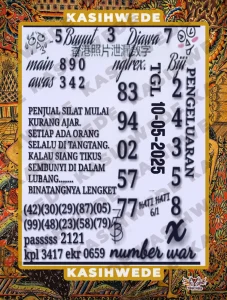 KASIHWEDE
5 Buyut 3 Djawa 7
香港照片泄漏数字
main 890 ngtrex. Biji
awas 342
83 2
94 4
02 3
57 5
77 8
TGL 10-05-2025
PENGELUARAN
PENJUAL SILAT MULAI
KURANG AJAR.
SETIAP ADA ORANG
SELALU DI TANGTANG.
KALAU SIANG TIKUS
SEMBUNYI DI DALAM
LUBANG........
BINATANGNYA LENGKET
HATI HATI
6/1
(42)(30)(29)(87)(05)
(99)(48)(23)(58)(79)
passsss 2121 x
kpl 3417 ekr 0659 number war
KASIHWEDE